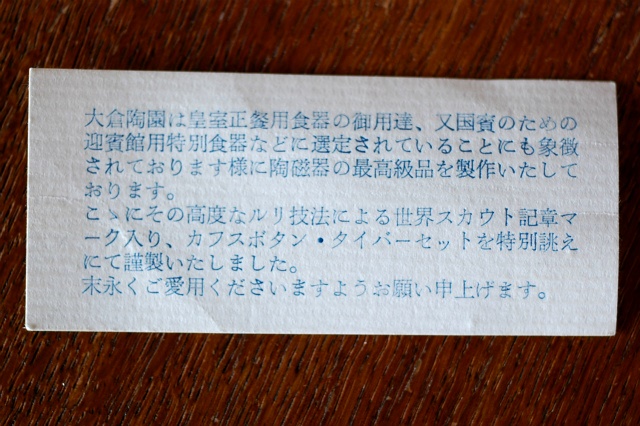 大倉陶園は皇室正餐用食器の御用達、又国賓のための
迎賓館用特別食器などに選定されていることにも象徴
されております様に陶磁器の最高級品を製作いたして
おります。
こゝにその高度なルリ技法による世界スカウト記章マ
ーク入り、カフスボタン・タイバーセットを特別誂え
にて謹製いたしました。
末永くご愛用くださいますようお願い申上げます。